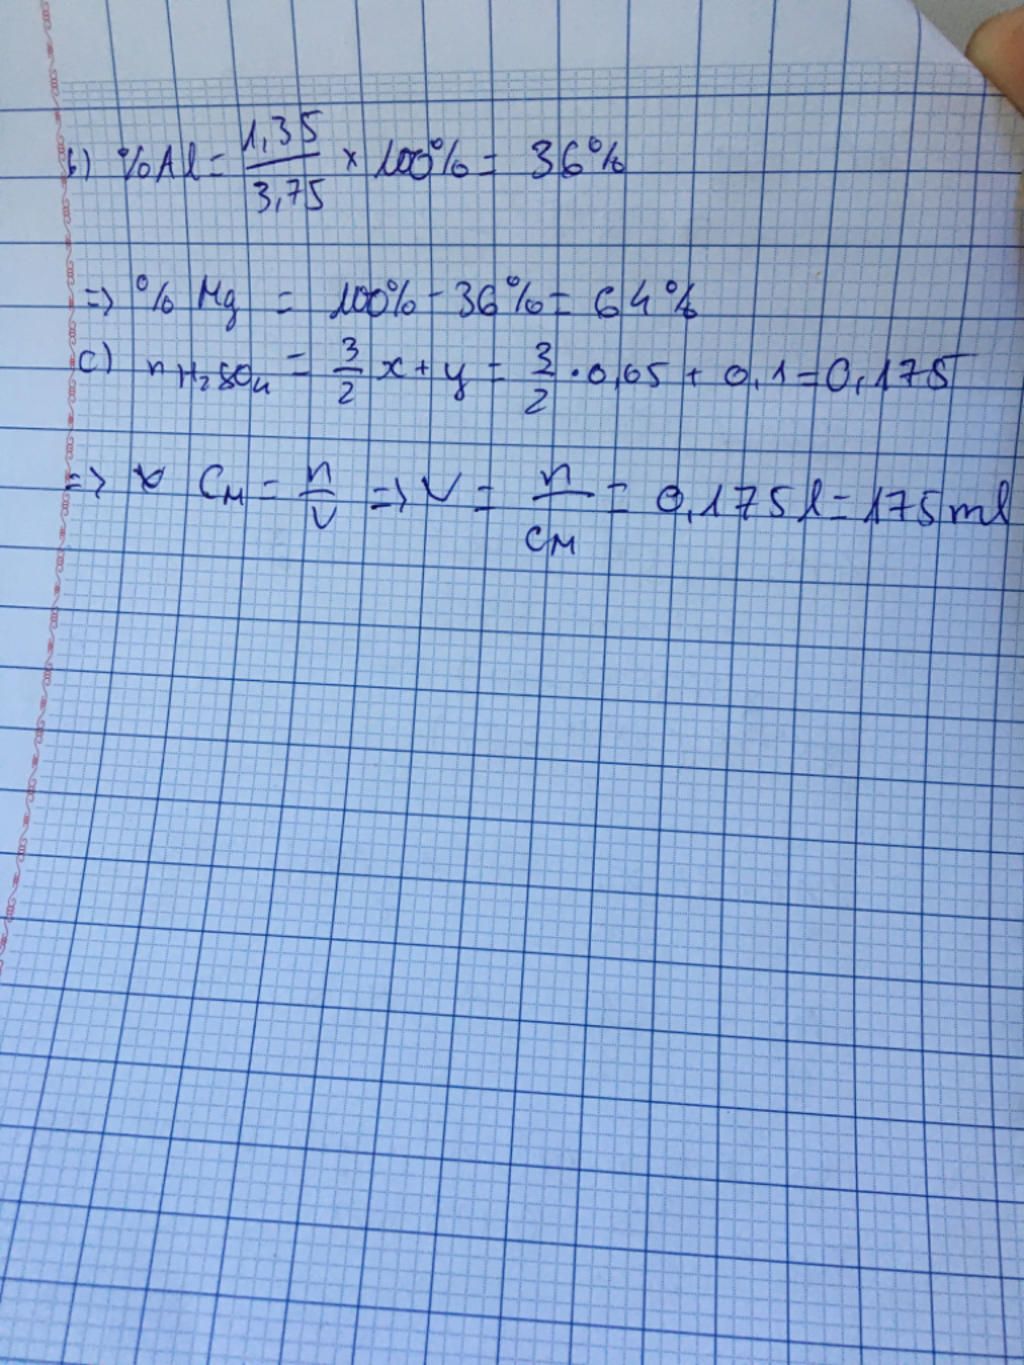 b) %Al = 1,35 / 3,75 × 100% = 36%
=> % Mg = 100% - 36% = 64%
c) nH2SO4 = 3/2 x + y = 3/2 . 0,05 + 0,1 = 0,175
=> CM = n/V => V = n/CM = 0,175l = 175ml